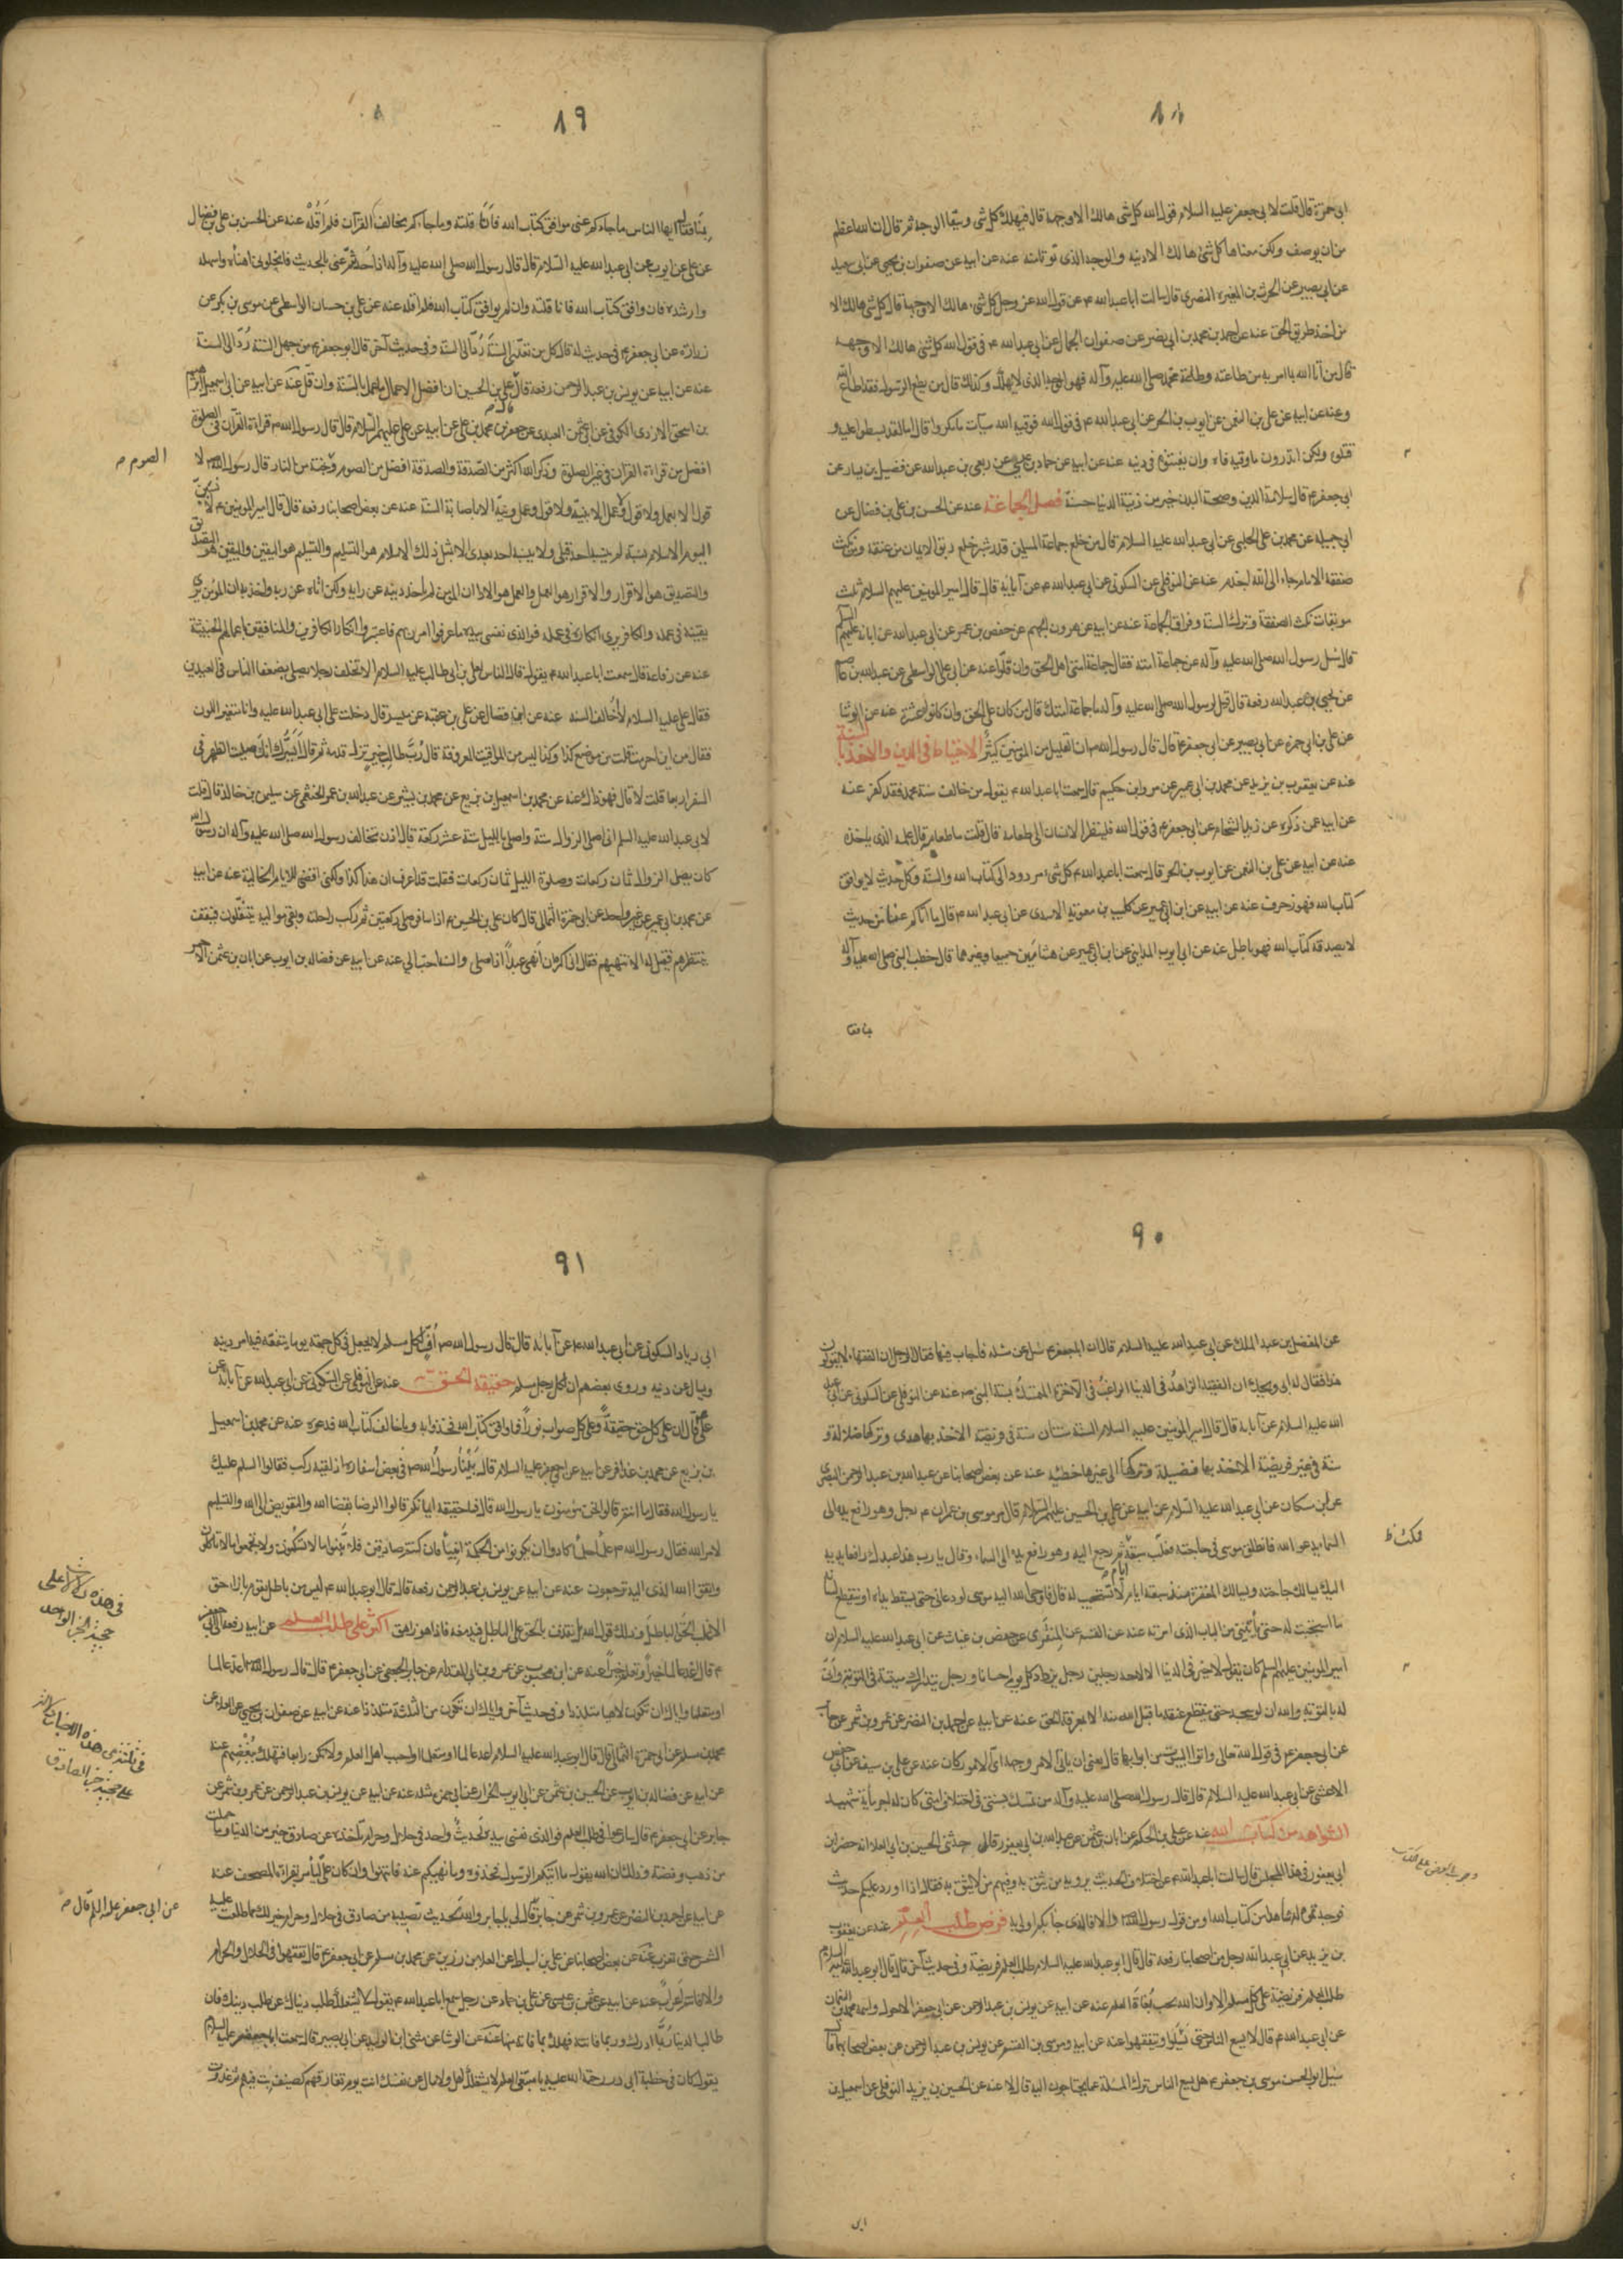 ٨٨
ابى حمزة قال قلت لابى جعفر عليه السلام قول الله كل شئ هالك الا وجهه قال فيهلك كل شئ ويبقا الوجه ثم قال ان الله اعظم
من ان يوصف ولكن معناها كل شئ هالك الا دينه والوجه الذى توتى منه عنه عن ابيه عن صفوان بن يحيى عن ابى سعيد
عن ابى بصير عن الحرث بن المغيرة النصرى قال سالت ابا عبد الله ع عن قول الله عز وجل كل شئ هالك الا وجهه قال كل شئ هالك الا
من اخذ طريق الحق عنه عن احمد بن محمد بن ابى نصر عن صفوان الجمال عن ابى عبد الله ع فى قول الله كل شئ هالك الا وجهه
قال من اتا الله بما امر به من طاعته وطاعة محمد صلى الله عليه وآله فهو الوجه الذى لا يهلك وكذلك قال من يطع الرسول فقد اطاع الله
وعنه عن ابيه عن على بن النعمن عن ايوب بن الحر عن ابى عبد الله ع فى قول الله فوقيه الله سيآت ما مكروا قال اما لقد بسطوا عليه و
قتلوه ولكن اتدرون ما وقيه وقاه ان يفتنوه فى دينه عنه عن ابيه عن حماد بن عيسى عن ربعى بن عبد الله عن فضيل بن يسار عن
ابى جعفر ع قال سلامة الدين وصحة البدن خير من زينة الدنيا حسنة فضل الجماعة عنه عن الحسن بن على بن فضال عن
ابى جميلة عن محمد بن على الحلبى عن ابى عبد الله عليه السلام قال من خلع جماعة المسلمين قدر شبر خلع ربق الايمان من عنقه ومن نكث
صفقة الامام جاء الى الله اجذم عنه عن النوفلى عن السكونى عن ابى عبد الله ع عن آبايه قال قال امير المومنين عليهم السلام ثلث
موبقات نكث الصفقة وترك السنة وفراق الجماعة عنه عن ابيه عن هرون بن الجهم عن حفص بن عمر عن ابى عبد الله عن ابائه عليهم السلم
قال سئل رسول الله صلى الله عليه وآله عن جماعة امته فقال جماعة امتى اهل الحق وان قلّوا عنه عن ابى على الواسطى عن عبد الله بن عاصم
عن يحيى بن عبد الله رفعه قال قيل لرسول الله صلى الله عليه وآله ما جماعة امتك قال من كان على الحق وان كانوا عشرة عنه عن الوشا
عن على بن ابى حمزة عن ابى بصير عن ابى جعفر ع قال قال رسول الله ص ان القليل من المومنين كثير الاحتياط فى الدين والاخذ بالسنة
عنه عن يعقوب بن يزيد عن محمد بن ابى عمير عن مرازم بن حكيم قال سمعت ابا عبد الله ع يقول من خالف سنة محمد فقد كفر عنه
عن ابيه عن ذكره عن زيد الشحام عن ابى جعفر ع فى قول الله فلينظر الانسان الى طعامه قال قلت ما طعامه قال علمه الذى ياخذه
عنه عن ابيه عن على بن النعمن عن ايوب بن الحر قال سمعت ابا عبد الله ع كل شئ مردود الى كتاب الله والسنة وكل حديث لا يوافق
كتاب الله فهو زخرف عنه عن ابيه عن ابن ابى عمير عن كليب بن معوية الاسدى عن ابى عبد الله ع قال ما اتاكم عنا من حديث
لا يصدقه كتاب الله فهو باطل عنه عن ابى ايوب المداينى عن ابن ابى عمير عن هشامين جميعا وغيرهما قال خطب النبى صلى الله عليه وآله
بمنا فقا
٨٩
بمنا فقال ايها الناس ما جاءكم عنى موافق كتاب الله فانا قلته وما جاءكم يخالف القرآن فلم اقله عنه عن الحسن بن على بن فضال
عن على عن ايوب عن ابى عبد الله عليه السلام قال قال رسول الله صلى الله عليه وآله اذا حدثتم عنى بالحديث فانحلونى اهناه واسهله
وارشده فان وافق كتاب الله فانا قلته وان لم يوافق كتاب الله فلم اقله عنه عن على بن حسان الواسطى عن موسى بن بكر عن
زراره عن ابى جعفر ع فى حديث له قال كل من تعدى السنة رد الى السنة وفى حديث آخر قال ابو جعفر ع من جهل السنة رد الى السنة
عنه عن ابيه عن يونس بن عبد الرحمن رفعه قال قال على بن الحسين ان افضل الاعمال ما عمل بالسنة وان قل عنه عن ابيه عن ابى اسمعيل ابرهيم
بن اسحق الازدى الكوفى عن ابى عثمن العبدى عن جعفر بن محمد بن على عن ابيه عن على عليهم السلام قال قال رسول الله ص قراءة القرآن فى الصلوة
افضل من قراءة القرآن فى غير الصلوة وذكر الله اكثر من الصدقة والصدقة افضل من الصوم وجنة من النار قال رسول الله ص لا
الصوم ص
قول الا بعمل ولا قول وعمل الا بنية ولا قول وعمل ونية الا باصابة السنة عنه عن بعض اصحابنا رفعه قال قال امير المومنين ع لانسبن
اليوم الاسلام نسبة لم ينسبه احد قبلى ولا ينسبه احد بعدى الا بمثل ذلك الاسلام هو التسليم والتسليم هو اليقين واليقين هو التصديق
والتصديق هو الاقرار والاقرار هو العمل والعمل هو الاداء ان المومن لم ياخذ دينه عن رايه ولكن اتاه عن ربه واخذ به ان المومن يرى
يقينه فى عمله والكافر يرى انكاره فى عمله فوالذى نفسى بيده ما عرفوا امر ربهم فاعتبروا انكار الكافرين والمنافقين باعمالهم الخبيثة
عنه عن رفاعة قال سمعت ابا عبد الله ع يقول قال الناس لعلى بن ابى طالب عليه السلام الا تخلف رجلا يصلى بضعفا الناس فى العيدين
فقال على عليه السلام لا اخالف السنه عنه عن ابن فضال عن على بن عقبة عن ميسر قال دخلت على ابى عبد الله عليه وانا متغير اللون
فقال من اين احرمت قلت من موضع كذا وكذا ليس من المواقيت المعروفة قال رب طالب خير تزل قدمه ثم قال ايسرك انك صليت الظهر فى
السفر اربعا قلت لا قال فهو ذاك عنه عن محمد بن اسمعيل بن بزيع عن محمد بن بشير عن عبد الله بن عمر الخثعمى عن سليمن بن خالد قال قلت
لابى عبد الله عليه السلم انى اصلى الزوال ستة واصلى بالليل ستة عشر ركعة قال اذن تخالف رسول الله صلى الله عليه وآله ان رسول الله
كان يصلى الزوال ثمان ركعات وصلوة الليل ثمان ركعات فقلت قد اعرف ان هذا كذا ولكنى اقضى للايام الخالية عنه عن ابيه
عن محمد بن ابى عمير عن غير واحد عن ابى حمزة الثمالى قال كان على بن الحسين ع اذا سافر صلى ركعتين ثم ركب راحلته وبقى مواليه يتنفلون فيقف
ينتظرهم فقيل له الا تنهيهم فقال انى اكره ان انهى عبدا اذا صلى والسنة احب الى عنه عن ابيه عن فضاله بن ايوب عن ابان بن عثمن الاحمر
٩٠
عن المفضل بن عبد الملك عن ابى عبد الله عليه السلام قال ان ابا جعفر ع سئل عن مسئلة فاجاب فيها فقال الرجل ان الفقهاء لا يقولون
هذا فقال له ابى ويحك ان الفقيه الزاهد فى الدنيا الراغب فى الآخرة المتمسك بسنة النبى ص عنه عن النوفلى عن السكونى عن ابى عبد
الله عليه السلام عن آبايه قال قال امير المومنين عليه السلام السنة سنتان سنة فى فريضة الاخذ بها هدى وتركها ضلالة و
سنة فى غير فريضة الاخذ بها فضيلة وتركها الى غيرها خطيئة عنه عن بعض اصحابنا عن عبد الله بن عبد الرحمن البصرى
عن ابن مسكان عن ابى عبد الله عليه السلام عن ابيه عن على بن الحسين عليهم السلام قال مر موسى بن عمران ع برجل وهو رافع يده الى
السماء يدعو الله فانطلق موسى فى حاجته فغاب سبعة ايام ثم رجع اليه وهو رافع يده الى السماء وقال يا رب هذا عبدك رافعا يديه
فمكث ظ
اليك يسالك حاجته ويسالك المغفرة منذ سبعة ايام لا تستجيب له قال فاوحى الله اليه يا موسى لو دعانى حتى يسقط يداه او ينقطع لسانه
ما استجبت له حتى ياتينى من الباب الذى امرته عنه عن القسم عن المنقرى عن حفص بن غياث عن ابى عبد الله عليه السلام ان
امير المومنين عليهم السلم كان يقول لا خير فى الدنيا الا لاحد رجلين رجل يزداد كل يوم احسانا ورجل يتدارك سيئته فى التوبة وانى
له بالتوبة والله ان لو سجد حتى ينقطع عنقه ما قبل الله منه الا بمعرفة الحق عنه عن ابيه عن احمد بن النضر عن عمرو بن شمر عن جابر
عن ابى جعفر ع فى قول الله تعالى واتوا البيوت من ابوابها قال يعنى ان ياتى الامر وجهه اى الامور كان عنه عن على بن سيف عن ابى حفص
الاعشى عن ابى عبد الله عليه السلام قال قال رسول الله صلى الله عليه وآله من تمسك بسنتى فى اختلاف امتى كان له اجر مأية شهيد
الشواهد من كتاب الله عنه عن على بن الحكم عن ابان بن عثمن عن عبد الله بن ابى يعفور قال وحدثنى الحسين بن ابى العلا انه حضر ابن
ابى يعفور فى هذا المجلس قال سالت ابا عبد الله ع عن اختلاف الحديث يرويه من يثق به وفيهم من لا يثق به فقال اذا ورد عليكم حديث
فوجدتموه له شاهد من كتاب الله او من قول رسول الله ص والا فالذى جاءكم اولى به فرض طلب العلم عنه عن يعقوب
بن يزيد عن ابى عبد الله رجل من اصحابنا رفعه قال قال ابو عبد الله عليه السلام طلب العلم فريضة وفى حديث آخر قال قال ابو عبد الله عليه السلام
طلب العلم فريضة على كل مسلم الا وان الله يحب بغاة العلم عنه عن ابيه عن يونس بن عبد الرحمن عن ابى جعفر الاحول واسمه محمد بن النعمان
عن ابى عبد الله ع قال لا يسع الناس حتى يسألوا ويتفقهوا عنه عن ابيه وموسى بن القسم عن يونس بن عبد الرحمن عن بعض اصحابهما قال
سئل ابو الحسن موسى بن جعفر ع هل يسع الناس ترك المسئلة عما يحتاجون اليه قال لا عنه عن الحسين بن يزيد النوفلى عن اسمعيل بن
ابى
٩١
ابى زياد السكونى عن ابى عبد الله ع عن آبائه قال قال رسول الله ص اف لكل مسلم لا يجعل فى كل جمعة يوما يتفقه فيه امر دينه
ويسال عن دينه وروى بعضهم اف لكل رجل مسلم حقيقة الحق عنه عن النوفلى عن السكونى عن ابى عبد الله عن آبائه عن
على ع قال ان على كل حق حقيقة وعلى كل صواب نورا فما وافق كتاب الله فخذوا به وما خالف كتاب الله فدعوه عنه عن محمد بن اسمعيل
بن بزيع عن محمد بن عذافر عن ابيه عن ابى جعفر عليه السلام قال بينا رسول الله ص فى بعض اسفاره اذ لقيه ركب فقالوا السلم عليك
يا رسول الله فقال ما انتم قالوا نحن مومنون يا رسول الله قال فما حقيقة ايمانكم قالوا الرضا بقضا الله والتفويض الى الله والتسليم
لامر الله فقال رسول الله ص علماء حلماء كادوا ان يكونوا من الحكمة انبيأ فان كنتم صادقين فلا تبنوا ما لا تسكنون ولا تجمعوا ما لا تاكلون
واتقوا الله الذى اليه ترجعون عنه عن ابيه عن يونس بن عبد الرحمن رفعه قال قال ابو عبد الله ع ليس من باطل يقوم بازاء حق
الا غلب الحق الباطل وذلك قول الله بل نقذف بالحق على الباطل فيدمغه فاذا هو زاهق الحث على طلب العلم عن ابيه رفعه الى ابى جعفر
ع قال اغد عالما خيرا وتعلم خيرا عنه عن ابن محبوب عن عمرو بن ابى المقدام عن جابر الجعفى عن ابى جعفر ع قال قال رسول الله ص اغد عالما
او متعلما واياك ان تكون لاهيا متلذذا وفى حديث آخر واياك ان تكون من الثلثة متلذذا عنه عن ابيه عن صفوان بن يحيى عن العلاء عن
محمد بن مسلم عن ابى حمزة الثمالى قال قال ابو عبد الله عليه السلام اغد عالما او متعلما او احب اهل العلم ولا تكن رابعا فتهلك ببغضهم عنه
عن ابيه عن فضاله بن ايوب عن الحسين بن عثمن عن ابى ايوب الخزاز عن ابى حمزة مثله عنه عن ابيه عن يونس بن عبد الرحمن عن عمرو بن شمر عن
جابر عن ابى جعفر ع قال سارعوا فى طلب العلم فوالذى نفسى بيده لحديث واحد فى حلال وحرام تاخذه عن صادق خير من الدنيا وما حملت
من ذهب وفضة وذلك ان الله يقول ما اتيكم الرسول فخذوه وما نهيكم عنه فانتهوا وان كان على ليأمر بقراءة المصحف عنه
عن ابيه عن احمد بن النضر عن عمرو بن شمر عن جابر قال لى يا جابر والله لحديث تصيبه من صادق فى حلال وحرام خير لك مما طلعت عليه
عن ابى جعفر عليه السلم قال ص
الشمس حتى تغرب عنه عن بعض اصحابنا عن على بن اسباط عن العلا بن رزين عن محمد بن مسلم عن ابى جعفر ع قال تفقهوا فى الحلال والحرام
والا فانتم اعراب عنه عن ابيه عن عثمن بن عيسى عن على بن حماد عن رجل سمع ابا عبد الله ع يقول لا يشغلك طلب دنياك عن طلب دينك فان
طالب الدنيا ربما ادرك وربما فاتته فهلك بما فاته منها عنه عن الوشا عن مثنى بن الوليد عن ابى بصير قال سمعت ابا جعفر عليه السلام
يقول كان فى خطبة ابى ذر رحمة الله عليه يا مبتغى العلم لا يشغلك اهل ولا مال عن نفسك انت يوم تفارقهم كضيف بت فيهم ثم غدوت